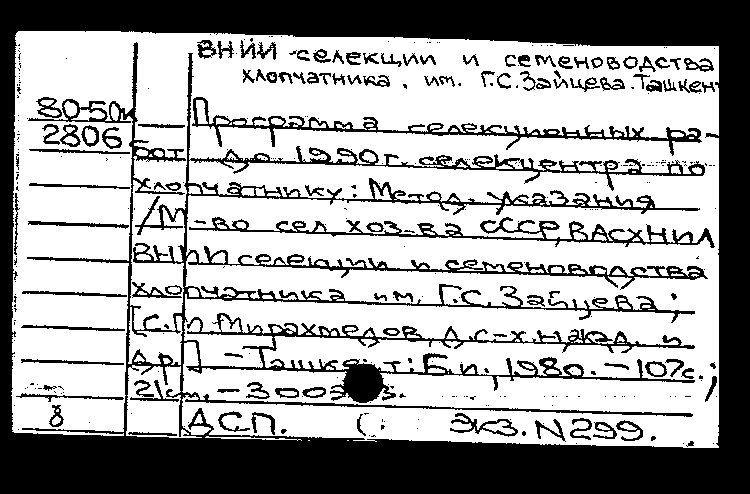 ВНИИ селекции и семеноводства
хлопчатника, им. Г.С. Зайцева. Ташкент
80-50к
2806
Программа селекционных ра-
бот до 1990г. селекцентра по
хлопчатнику: Метод. указания
/М-во сел. хоз-ва СССР, ВАСХНИЛ
ВНИИ селекции и семеноводства
хлопчатника им. Г.С. Зайцева;
[С.М. Мирахмедов, д.с-х.н. акад. и
др.] - Ташкент: Б.и., 1980. - 107с.;
21см. - 300экз.
8
ДСП. (: экз. N299.